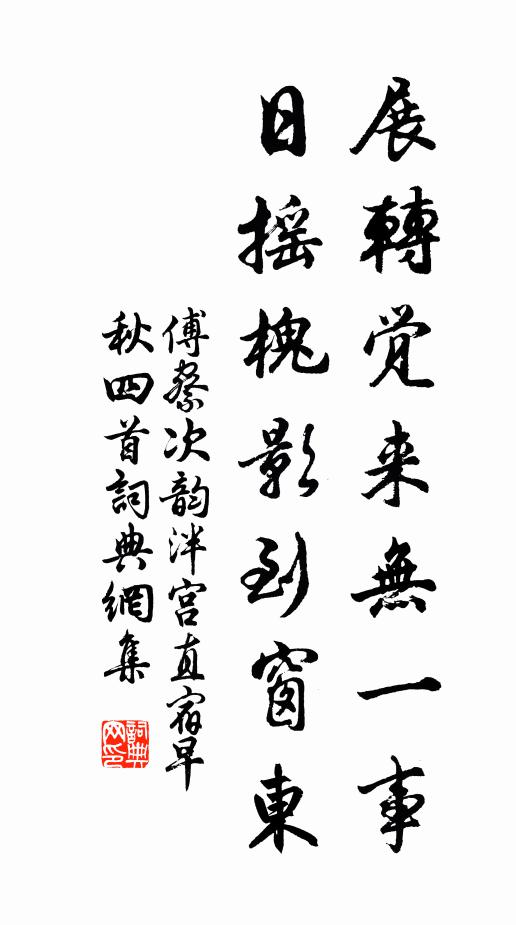 展轉觉来無一事
日摇槐影到窗東
傅察次韵泮宫直宿早
秋四首詞典網集
詞典